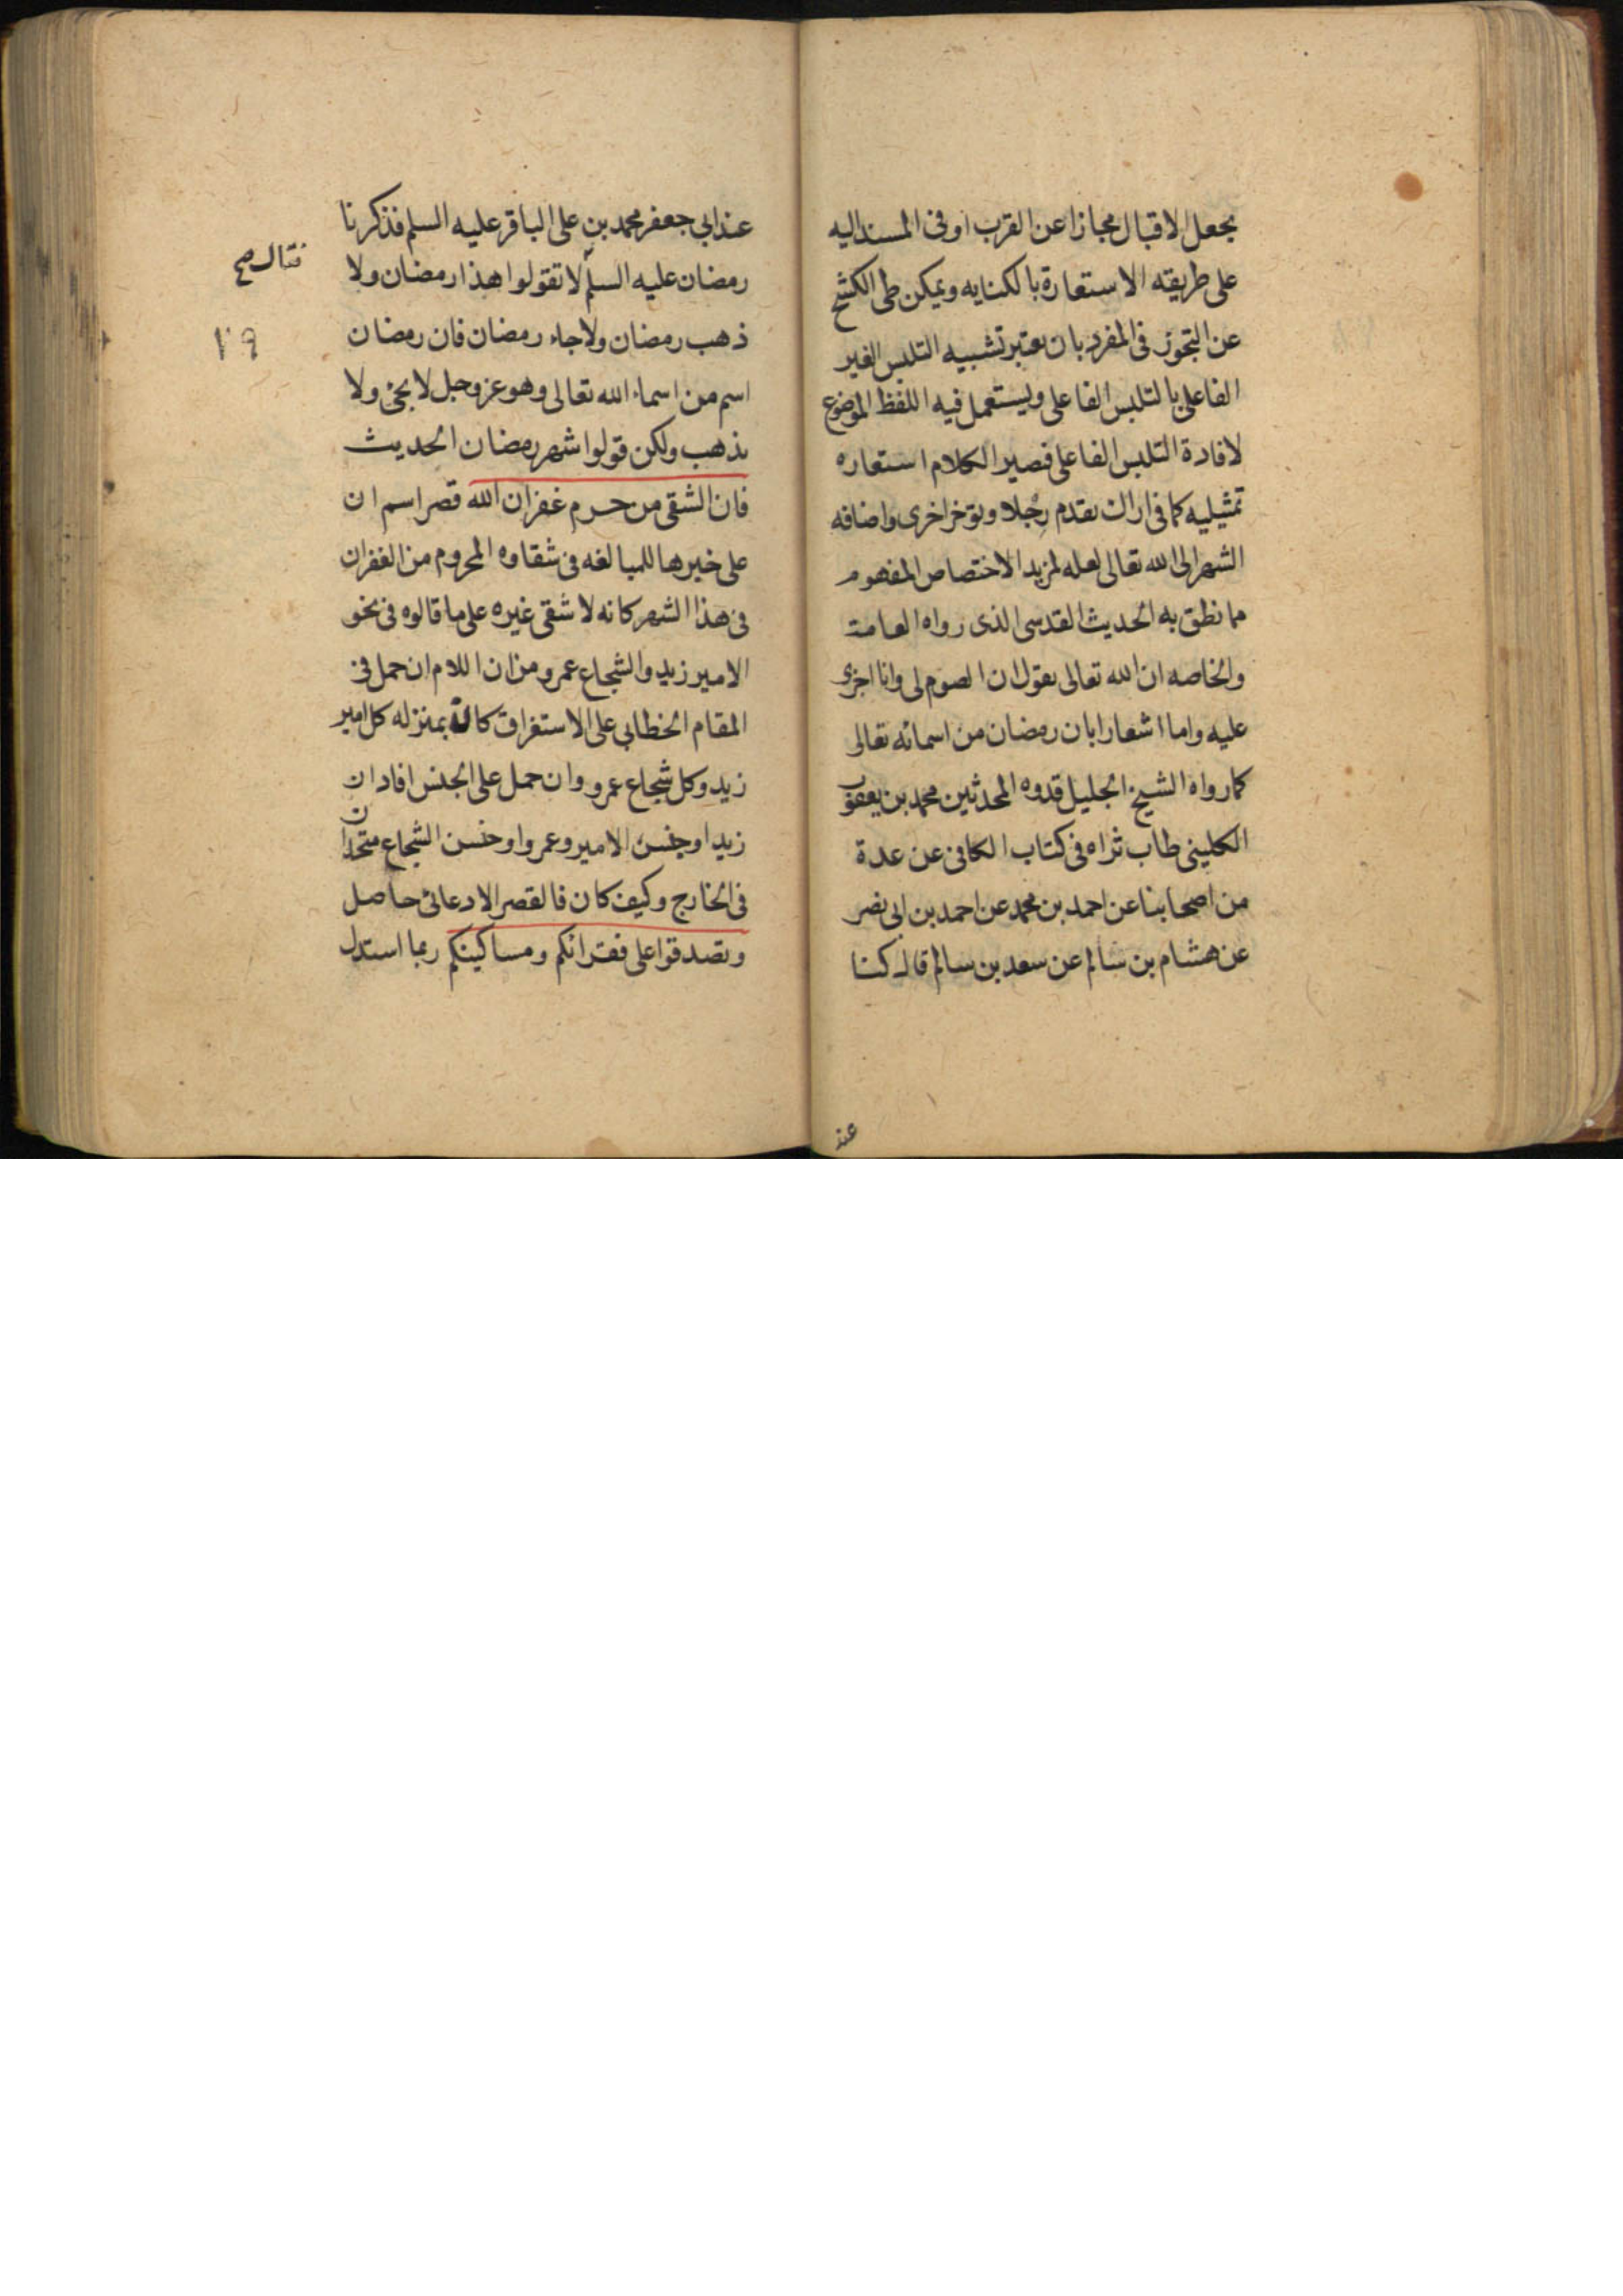 بجعل الاقبال مجازا عن القرب او فی المسند الیه
علی طریقه الاستعارة بالکنایه ویمکن طی الکشح
عن التجوز فی المفرد بان یعتبر تشبیه التلبس الغیر
الفاعلی بالتلبس الفاعلی ویستعمل فیه اللفظ الموضوع
لافادة التلبس الفاعلی فصیر الکلام استعاره
تمثیلیه کما فی اراک تقدم رجلا وتوخر اخری واضافه
الشهر الی الله تعالی لعله لمزید الاختصاص المفهوم
مما نطق به الحدیث القدسی الذی رواه العامة
والخاصه ان الله تعالی یقول ان الصوم لی وانا اجزی
علیه واما اشعارا بان رمضان من اسمائه تعالی
کما رواه الشیخ الجلیل قدوه المحدثین محمد بن یعقوب
الکلینی طاب ثراه فی کتاب الکافی عن عدة
من اصحابنا عن احمد بن محمد عن احمد بن ابی نصر
عن هشام بن سالم عن سعد بن سالم قال کنا
عند
عند ابی جعفر محمد بن علی الباقر علیه السلم فذکرنا
رمضان علیه السلم لا تقولوا هذا رمضان ولا
فقال صح
ذهب رمضان ولا جاء رمضان فان رمضان
١٠٩
اسم من اسماء الله تعالی وهو عز وجل لا یجئ ولا
یذهب ولکن قولوا شهر رمضان الحدیث
فان الشقی من حرم غفران الله قصر اسم ان
علی خبرها للمبالغه فی شقاوه المحروم من الغفران
فی هذا الشهر کانه لا شقی غیره علی ما قالوه فی نحو
الامیر زید والشجاع عمرو من ان اللام ان حمل فی
المقام الخطابی علی الاستغراق کان بمنزله کل امیر
زید وکل شجاع عمرو وان حمل علی الجنس افاد ان
زیدا وجنس الامیر وعمروا وجنس الشجاع متحدان
فی الخارج وکیف کان فالقصر الادعائی حاصل
وتصدقوا علی فقرائکم ومساکینکم ربما استدل